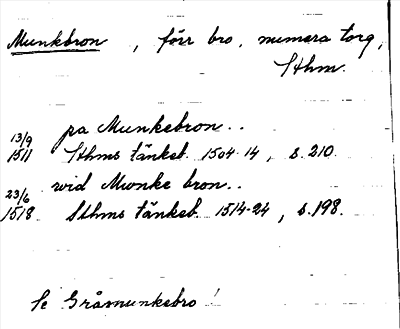 Munkbron, förr bro, numera torg,
Sthm.
13/9 pa Munkebron..
1511 Sthms tänkeb. 1504-14, s. 210.
23/6 wid Mwnke bron..
1518. Sthms tänkeb. 1514-24, s. 198.
Se Gråmunkebro!